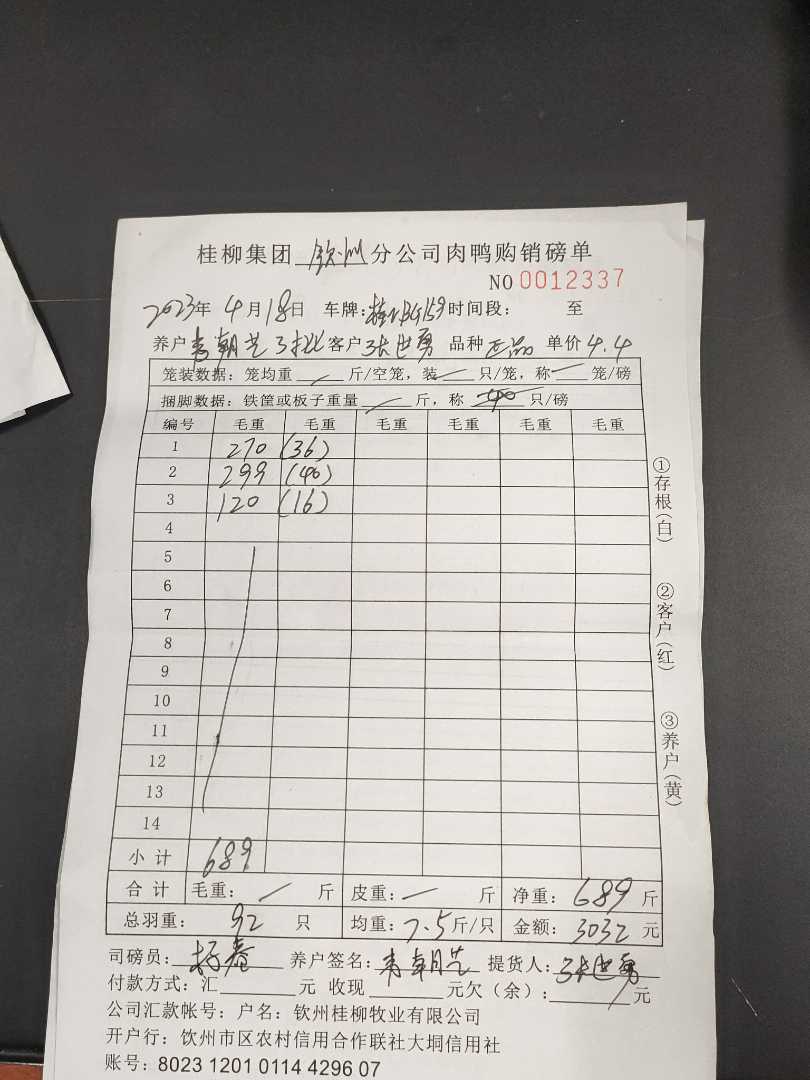 桂柳集团 钦州 分公司肉鸭购销磅单
NO 0012337
2023年 4月18日 车牌: 时间段: 至
养户 韦朝艺 3批 客户 张世勇 品种 正品 单价 4.4
笼装数据: 笼均重 斤/空笼, 装 只/笼, 称 笼/磅
捆脚数据: 铁筐或板子重量 斤, 称 40 只/磅
编号 毛重 毛重 毛重 毛重 毛重
1 270 (36)
2 299 (40)
3 120 (16)
4
5
6
7
8
9
10
11
12
13
14
小计 689
合计 毛重: 斤 皮重: 斤 净重: 689 斤
总羽重: 92 只 均重: 7.5 斤/只 金额: 3032 元
司磅员: 养户签名: 韦朝艺 提货人: 张世勇
付款方式: 汇 元 收现 元欠(余): 元
公司汇款帐号: 户名: 钦州桂柳牧业有限公司
开户行: 钦州市区农村信用合作联社大垌信用社
账号: 8023 1201 0114 4296 07
①存根(白)
②客户(红)
③养户(黄)